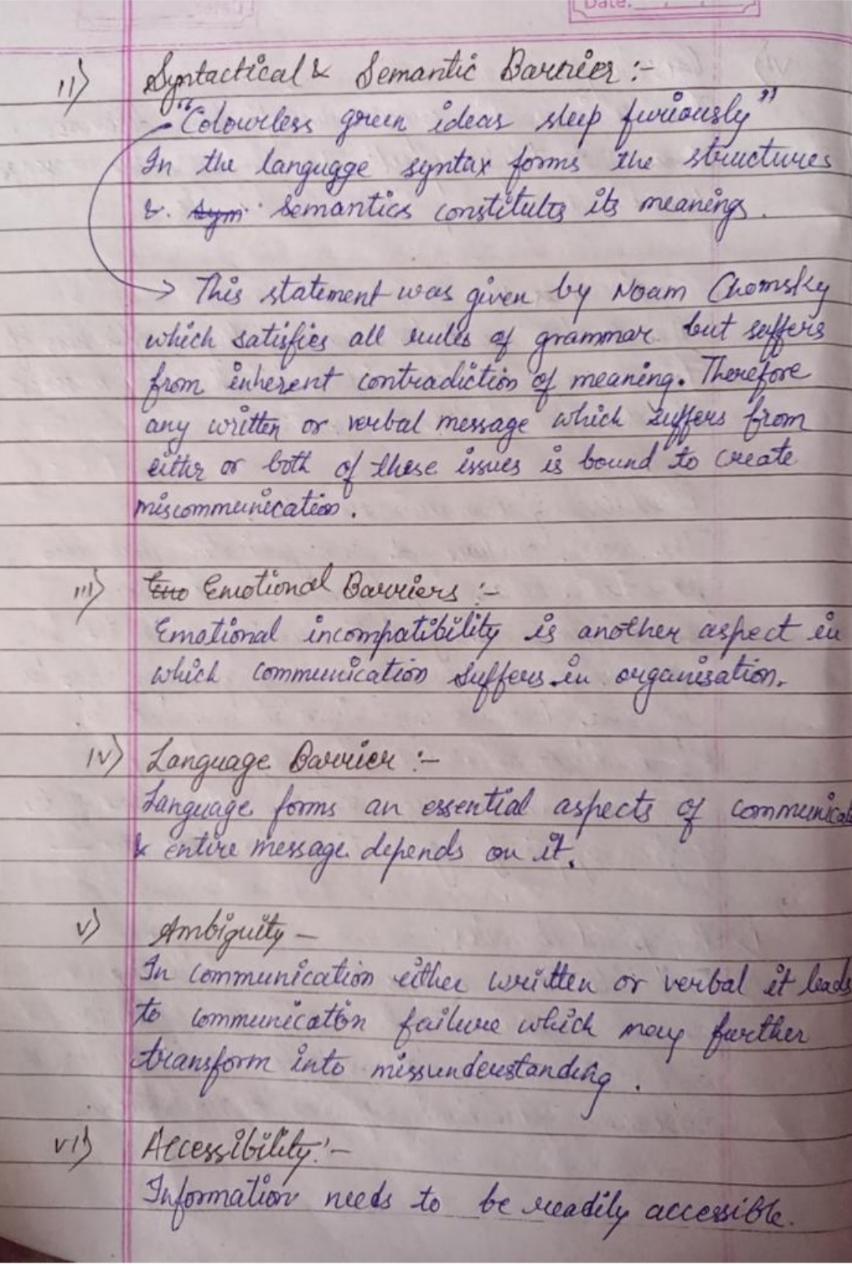 Date:
ii) Syntactical & Semantic Barrier :-
"Colourless green ideas sleep furiously"
In the langugge syntax forms the structures
&. Sym. Semantics constitutes its meanings.
→ This statement was given by Noam Chomsky
which satisfies all rules of grammar but suffers
from inherent contradiction of meaning. Therefore
any written or verbal message which suffers from
either or both of these issues is bound to create
miscommunication.
iii) Emotional Barriers :-
Emotional incompatibility is another aspect in
which communication suffers in organisation.
iv) Language Barrier :-
Language forms an essential aspects of communica
& entire message depends on it.
v) Ambiguity -
In communication either written or verbal it leads
to communication failure which may further
transform into missunderstanding.
vi) Accessibility:-
Information needs to be readily accessible.